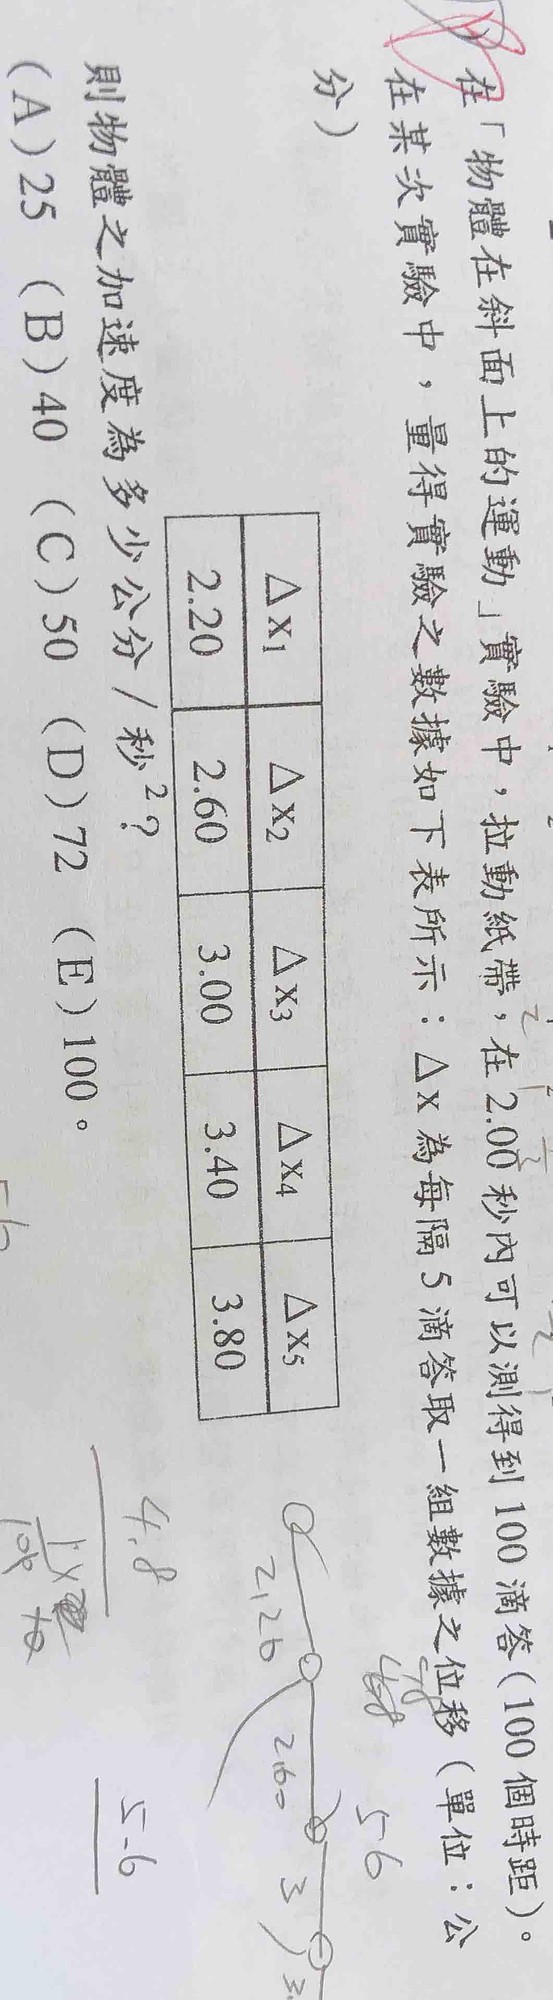 在「物體在斜面上的運動」實驗中，拉動紙帶，在 2.00 秒內可以測得到 100 滴答(100 個時距)。
在某次實驗中，量得實驗之數據如下表所示：△x 為每隔 5 滴答取一組數據之位移(單位：公
分)
△x1 △x2 △x3 △x4 △x5
2.20 2.60 3.00 3.40 3.80
則物體之加速度為多少公分/秒²？
(A)25 (B)40 (C)50 (D)72 (E)100。
2.20 2.60 3
5.6
4.8
5.6